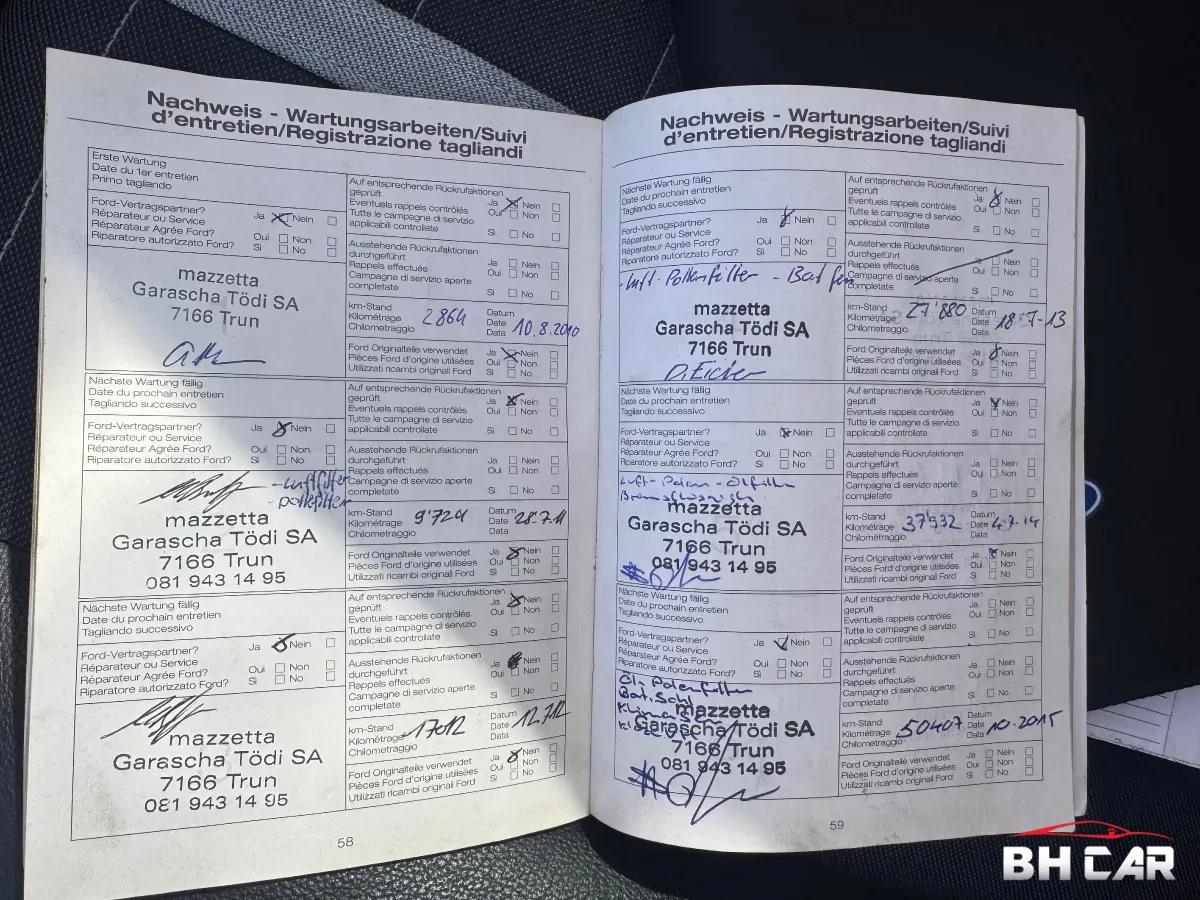 Nachweis - Wartungsarbeiten/Suivi
d'entretien/Registrazione tagliandi
Erste Wartung
Date du 1er entretien
Primo tagliando
Auf entsprechende Rückrufaktionen
geprüft
Eventuels rappels contrôlés
Tutte le campagne di servizio
applicabili controllate
Ja Nein
Oui Non
Sì No
Ford-Vertragspartner?
Réparateur ou Service
Réparateur Agrée Ford?
Riparatore autorizzato Ford?
Ja Nein
Oui Non
Sì No
Ausstehende Rückrufaktionen
durchgeführt
Rappels effectués
Campagne di servizio aperte
completate
Ja Nein
Oui Non
Sì No
mazzetta
Garascha Tödi SA
7166 Trun
km-Stand
Kilométrage
Chilometraggio
2864
Datum
Date
Data
10.8.2010
Ford Originalteile verwendet
Pièces Ford d'origine utilisées
Utilizzati ricambi originali Ford
Ja Nein
Oui Non
Sì No
Nächste Wartung fällig
Date du prochain entretien
Tagliando successivo
Auf entsprechende Rückrufaktionen
geprüft
Eventuels rappels contrôlés
Tutte le campagne di servizio
applicabili controllate
Ja Nein
Oui Non
Sì No
Ford-Vertragspartner?
Réparateur ou Service
Réparateur Agrée Ford?
Riparatore autorizzato Ford?
Ja Nein
Oui Non
Sì No
Ausstehende Rückrufaktionen
durchgeführt
Rappels effectués
Campagne di servizio aperte
completate
Ja Nein
Oui Non
Sì No
- Luftfilter
- pollefilter
mazzetta
Garascha Tödi SA
7166 Trun
081 943 14 95
km-Stand
Kilométrage
Chilometraggio
9'724
Datum
Date
Data
28.7.11
Ford Originalteile verwendet
Pièces Ford d'origine utilisées
Utilizzati ricambi originali Ford
Ja Nein
Oui Non
Sì No
Nächste Wartung fällig
Date du prochain entretien
Tagliando successivo
Auf entsprechende Rückrufaktionen
geprüft
Eventuels rappels contrôlés
Tutte le campagne di servizio
applicabili controllate
Ja Nein
Oui Non
Sì No
Ford-Vertragspartner?
Réparateur ou Service
Réparateur Agrée Ford?
Riparatore autorizzato Ford?
Ja Nein
Oui Non
Sì No
Ausstehende Rückrufaktionen
durchgeführt
Rappels effectués
Campagne di servizio aperte
completate
Ja Nein
Oui Non
Sì No
mazzetta
Garascha Tödi SA
7166 Trun
081 943 14 95
km-Stand
Kilométrage
Chilometraggio
17012
Datum
Date
Data
12.7.12
Ford Originalteile verwendet
Pièces Ford d'origine utilisées
Utilizzati ricambi originali Ford
Ja Nein
Oui Non
Sì No
58
Nachweis - Wartungsarbeiten/Suivi
d'entretien/Registrazione tagliandi
Nächste Wartung fällig
Date du prochain entretien
Tagliando successivo
Auf entsprechende Rückrufaktionen
geprüft
Eventuels rappels contrôlés
Tutte le campagne di servizio
applicabili controllate
Ja Nein
Oui Non
Sì No
Ford-Vertragspartner?
Réparateur ou Service
Réparateur Agrée Ford?
Riparatore autorizzato Ford?
Ja Nein
Oui Non
Sì No
Ausstehende Rückrufaktionen
durchgeführt
Rappels effectués
Campagne di servizio aperte
completate
Ja Nein
Oui Non
Sì No
- Luft-Pollenfilter - Bat
mazzetta
Garascha Tödi SA
7166 Trun
km-Stand
Kilométrage
Chilometraggio
27'880
Datum
Date
Data
18.7.13
Ford Originalteile verwendet
Pièces Ford d'origine utilisées
Utilizzati ricambi originali Ford
Ja Nein
Oui Non
Sì No
Nächste Wartung fällig
Date du prochain entretien
Tagliando successivo
Auf entsprechende Rückrufaktionen
geprüft
Eventuels rappels contrôlés
Tutte le campagne di servizio
applicabili controllate
Ja Nein
Oui Non
Sì No
Ford-Vertragspartner?
Réparateur ou Service
Réparateur Agrée Ford?
Riparatore autorizzato Ford?
Ja Nein
Oui Non
Sì No
Ausstehende Rückrufaktionen
durchgeführt
Rappels effectués
Campagne di servizio aperte
completate
Ja Nein
Oui Non
Sì No
Luft- Polen - Ölfilter
mazzetta
Garascha Tödi SA
7166 Trun
081 943 14 95
km-Stand
Kilométrage
Chilometraggio
37'932
Datum
Date
Data
4.7.14
Ford Originalteile verwendet
Pièces Ford d'origine utilisées
Utilizzati ricambi originali Ford
Ja Nein
Oui Non
Sì No
Nächste Wartung fällig
Date du prochain entretien
Tagliando successivo
Auf entsprechende Rückrufaktionen
geprüft
Eventuels rappels contrôlés
Tutte le campagne di servizio
applicabili controllate
Ja Nein
Oui Non
Sì No
Ford-Vertragspartner?
Réparateur ou Service
Réparateur Agrée Ford?
Riparatore autorizzato Ford?
Ja Nein
Oui Non
Sì No
Ausstehende Rückrufaktionen
durchgeführt
Rappels effectués
Campagne di servizio aperte
completate
Ja Nein
Oui Non
Sì No
Öl- Polenfilter
Bat. Schl
mazzetta
Garascha Tödi SA
7166 Trun
081 943 14 95
km-Stand
Kilométrage
Chilometraggio
50407
Datum
Date
Data
10.2015
Ford Originalteile verwendet
Pièces Ford d'origine utilisées
Utilizzati ricambi originali Ford
Ja Nein
Oui Non
Sì No
59
BH CAR